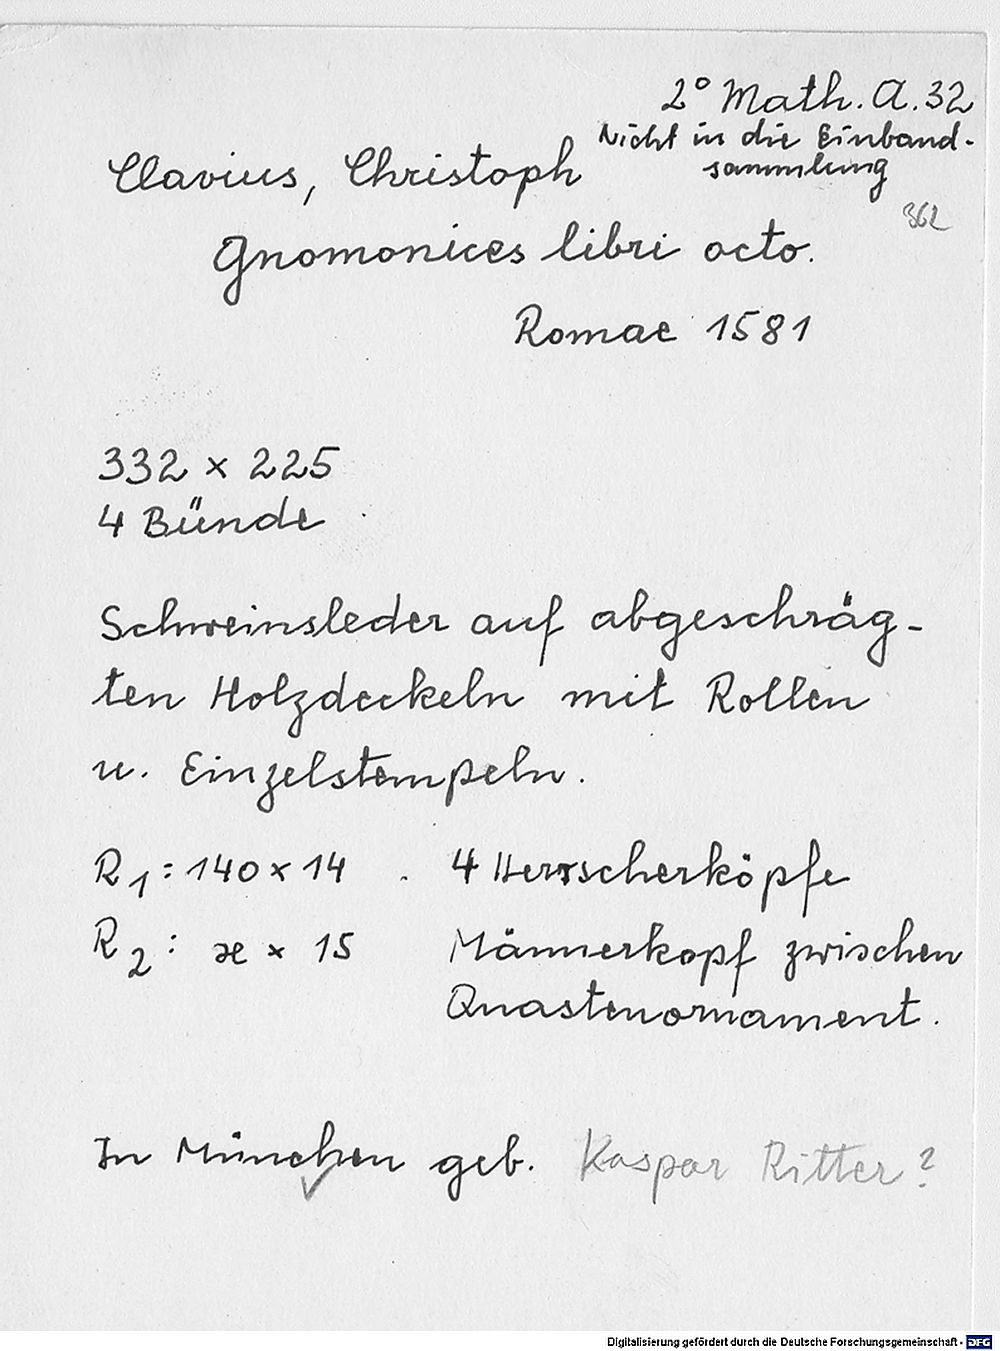 2° Math. A. 32
Nicht in die Einband-
sammlung
Clavius, Christoph
362
Gnomonices libri octo.
Romae 1581
332 x 225
4 Bünde
Schweinsleder auf abgeschräg-
ten Holzdeckeln mit Rollen
u. Einzelstempeln.
R1: 140 x 14 . 4 Herrscherköpfe
R2: æ x 15 Männerkopf zwischen
Quastenornament.
In München geb. Kaspar Ritter?
Digitalisierung gefördert durch die Deutsche Forschungsgemeinschaft - DFG